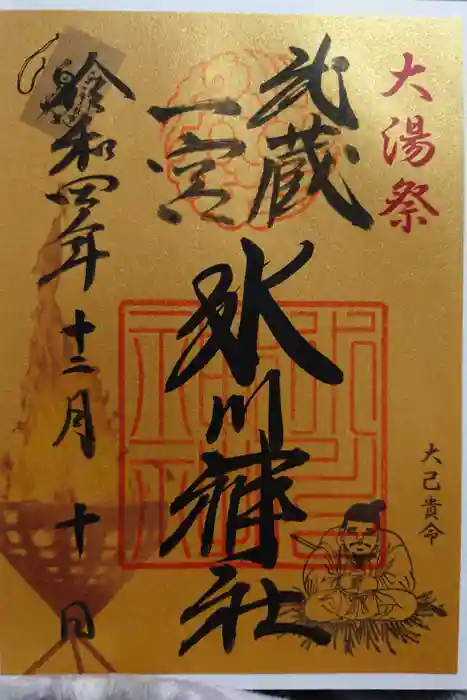 大湯祭
大己貴命
武蔵
一宮
氷川神社
令和四年十二月十日